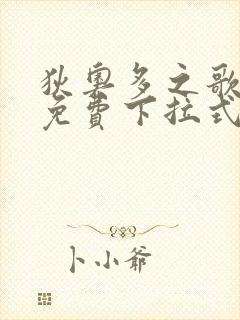 狄奥多之歌
免費下拉式
卜小爺